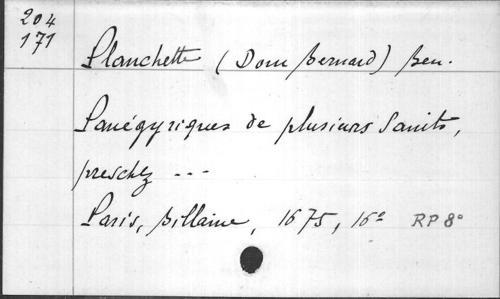 204
171
Planchette (Dom Bernard) ben.
Panégyriques de plusieurs Saints,
preschez ---
Paris, Billaine, 1675, 16º RP 8º